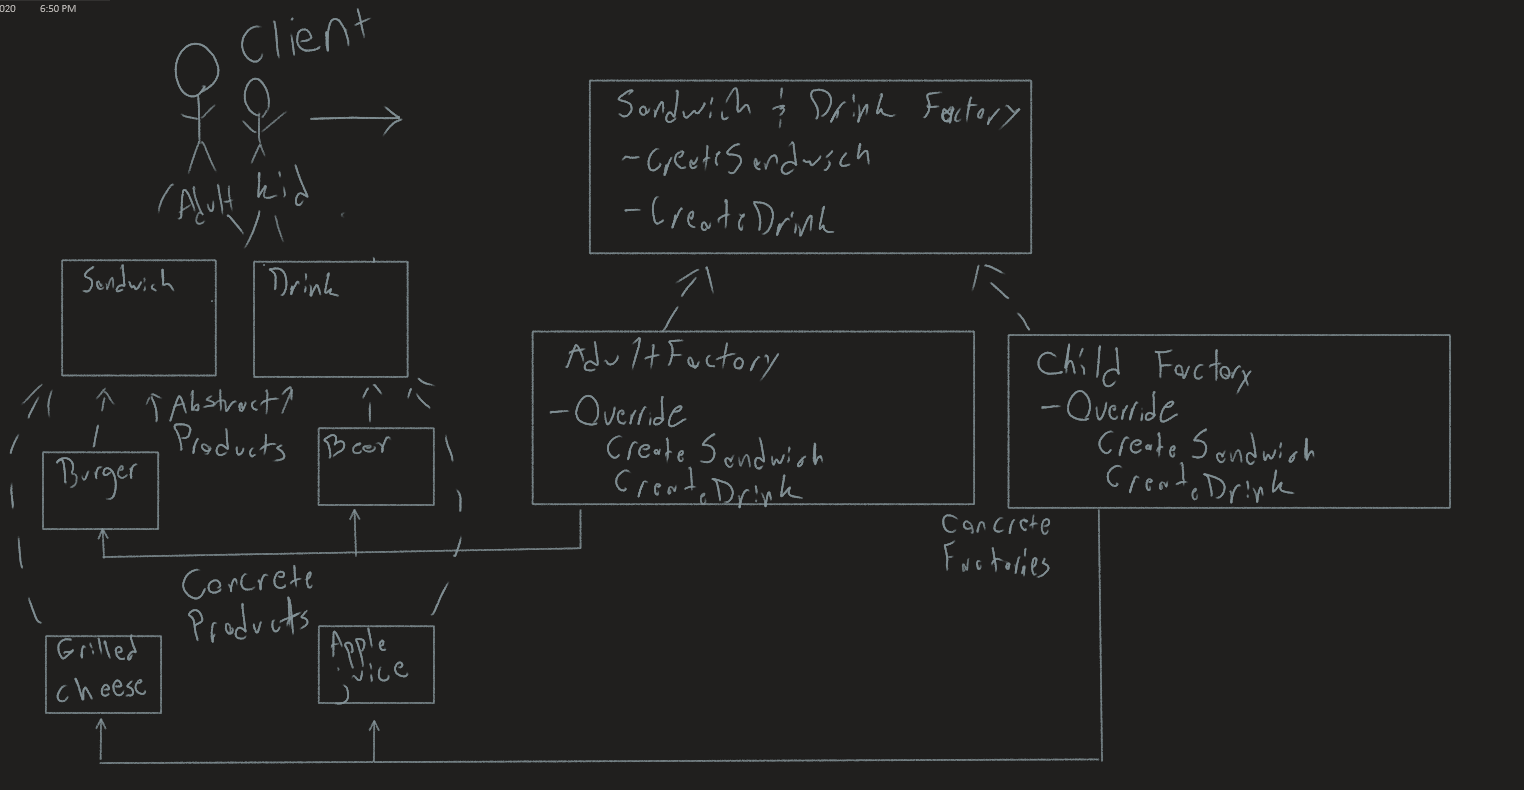 020 6:50 PM
Client
(Adult kid
Sandwich & Drink Factory
- CreateSandwich
- CreateDrink
Sandwich
Drink
↑ Abstract ↑
Products
Burger
Beer
AdultFactory
- Override
Create Sandwich
Create Drink
Child Factory
- Override
Create Sandwich
Create Drink
Concrete
Factories
Concrete
Products
Grilled
cheese
Apple
juice